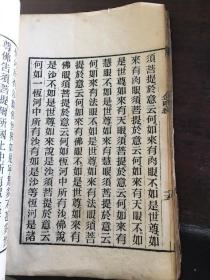 須菩提於意云何如來有肉眼不如是世尊如
來有肉眼須菩提於意云何如來有天眼不如
是世尊如來有天眼須菩提於意云何如來有
慧眼不如是世尊如來有慧眼須菩提於意云
何如來有法眼不如是世尊如來有法眼須菩
提於意云何如來有佛眼不如是世尊如來有
佛眼須菩提於意云何如恆河中所有沙佛說
是沙不如是世尊如來說是沙須菩提於意云
何如一恆河中所有沙有如是沙等恆河是諸
尊佛告須菩提爾所國土中所